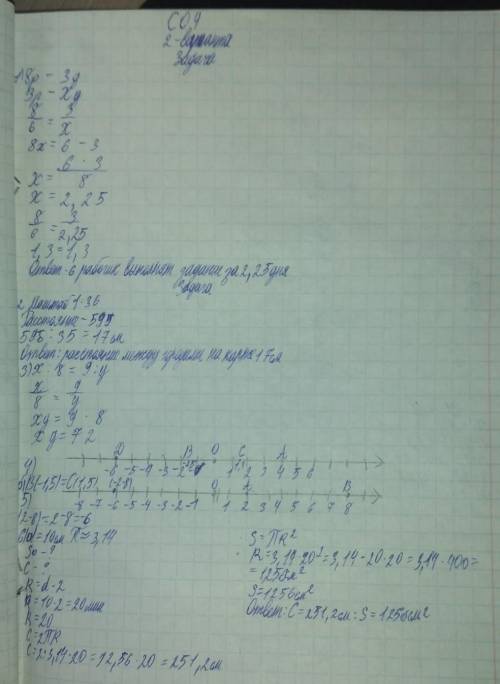 СОЧ
2-варианта
Задача
1) 8р - 3д
3р - xд
8/6 = 3/x
8x = 6 - 3
x = 6 · 3 / 8
x = 2,25
8/6 = 3/2,25
1,3 = 1,3
Ответ: 6 рабочих выполнят задание за 2,25 дня
Задача
2. Масштаб 1:36
Расстояние - 595
595 : 35 = 17 см
Ответ: расстояние между городами на карте 17 см
3) x · 8 = 9 : y
x/8 = 9/y
xy = 9 · 8
xy = 72
4) D B O C A
-6 -5 -4 -3 -2 1 2 3 4 5 6
B(-1,5) = C(1,5)
5) O A B
-8 -7 -6 -5 -4 -3 -2 -1 1 2 3 4 5 6 7 8
(2-8) = 2-8 = -6
6) d = 10 см π ≈ 3,14
S - ?
C - ?
R = d · 2
R = 10 · 2 = 20 мм
R = 20
C = 2πR
C = 2 · 3,14 · 20 = 12,56 · 20 = 251,2 см
S = πR²
R = 3,14 · 20² = 3,14 · 20 · 20 = 3,14 · 400 =
= 1256 см²
S = 1256 см²
Ответ: C = 251,2 см; S = 1256 см²